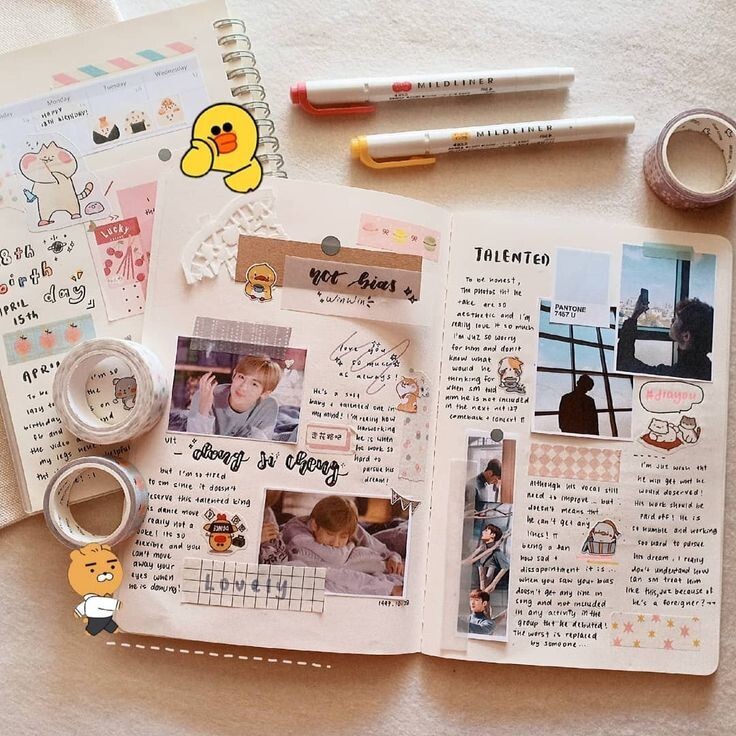 Monday
Tuesday
Wednesday
HAPPY
18TH BIRTHDAY!
LUCKY
18th
Birth
day
APRIL
15TH
MILDLINER
MILDLINER
not bias
WINWIN
love you
so much
as always!
He's a soft
baby & talented one in
my mind! I'm really how
hardworking
he is when
work so
hard to
pursue his
dream!
- dong si cheng
but I'm so tired
to SM since it doesn't
deserve this talented king
dance move
really not a
joke! Its so
flexible and you
can't move
away your
eyes when
he is dancing!
Lovely
1997.10.28
TALENTED
To be honest,
The photos tht he
take are so
aesthetic and I'm
really love it so much
I'm juz so worry
for him and don't
know what
would he
thinking for
when SM told
him he is not included
in the next nct 127
comeback & concert!!
PANTONE
7457 U
#Jiayou
Although his vocal still
need to improve.. but
doesn't means tht
he can't get any
lines!!
being a fan
how sad &
disappointment it is...
when you saw your bias
doesn't get any line in
song and not included
in any activity in the
group tht he debuted!
The worst is replaced
by someone...
I'm juz wish tht
he will get what he
would deserved!
His work should be
paid off! He is
so humble and working
too hard to pursue
his dream. I really
don't understand how
can SM treat him
like this, juz because of
he's a foreigner?